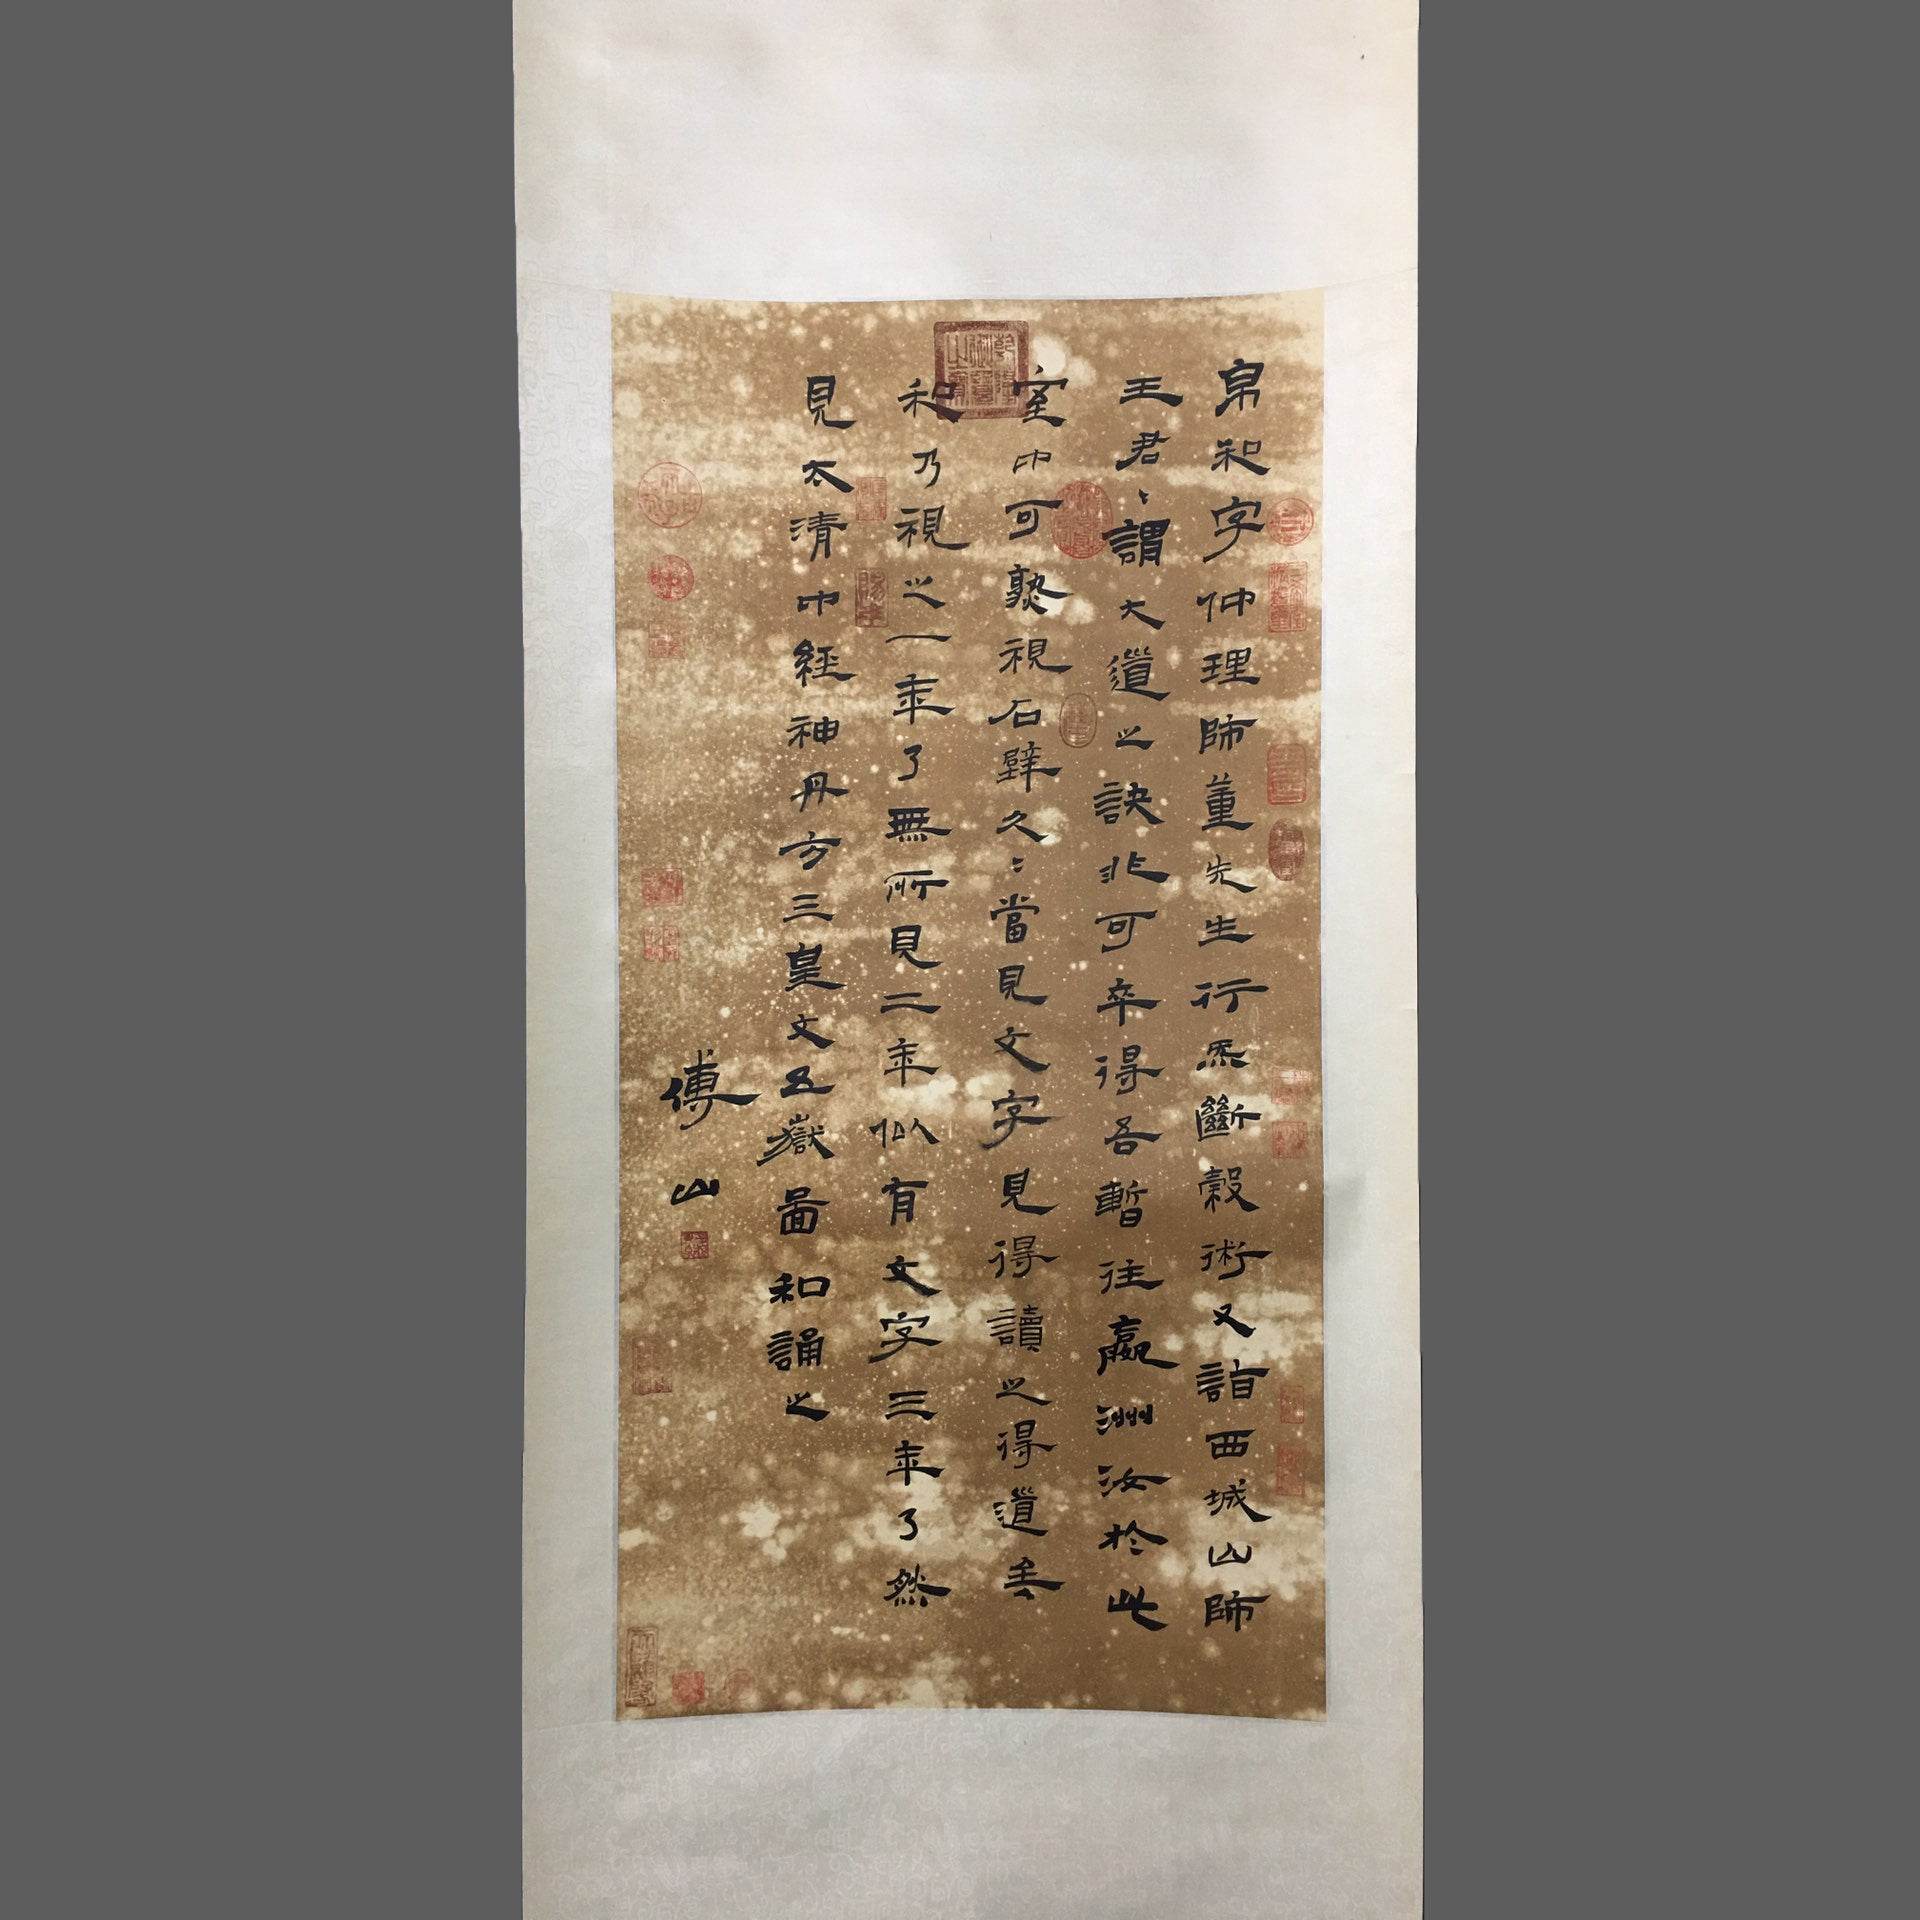 帛和字仲理師董先生行炁斷穀術又詣西城山師
王君〻謂大道之訣非可卒得吾暫往瀛洲汝於此
室中可熟視石壁久〻當見文字見得讀之得道矣
和乃視之一年了無所見二年似有文字三年了然
見太清中經神丹方三皇文五嶽圖和誦之
傅山
乾隆御覽之寶